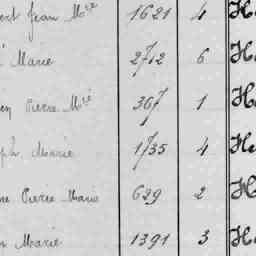 ert Jean Mie 1621 4 H
Marie 2712 6 H
en Pierre Mie 367 1 H
ph Marie 1735 4 He
ne Pierre Marie 629 2 H
n Marie 1391 3 H